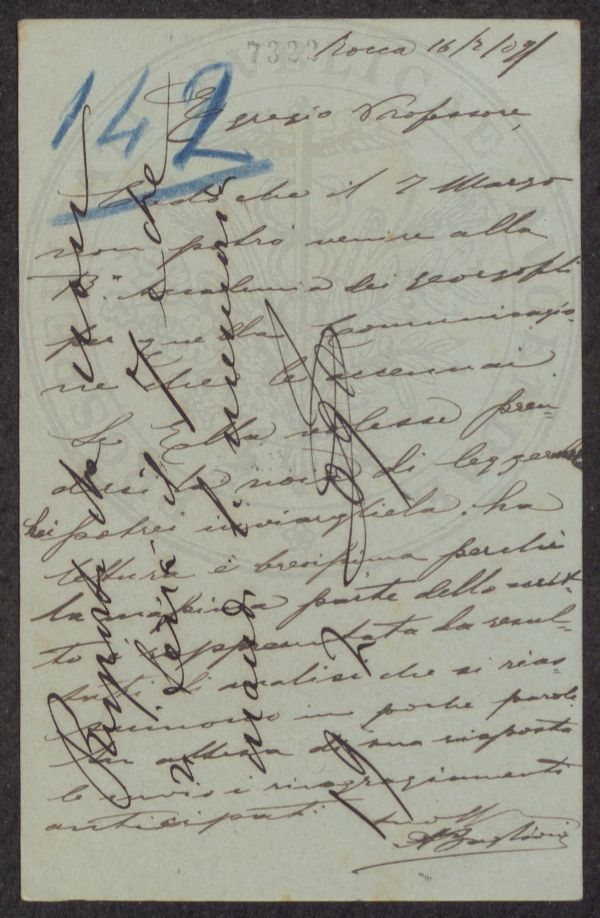 7322
Roma 16/2/09
142
Egregio Professore,
Credo che il 7 Marzo
non potrò venire alla
R.ª Accademia dei Georgofili
per quella Comunicazio
ne che le accennai.
Se Ella volesse pren
dersi la noia di leggermela
potrei inviargliela. La
lettura è brevissima perchè
la massima parte dello scrit
to è rappresentata da resul
tati di analisi che si rias
sumono in poche parole
In attesa di sua risposta
le invio i ringraziamenti
anticipati.
Risposto che
verrà il T. che
mandi